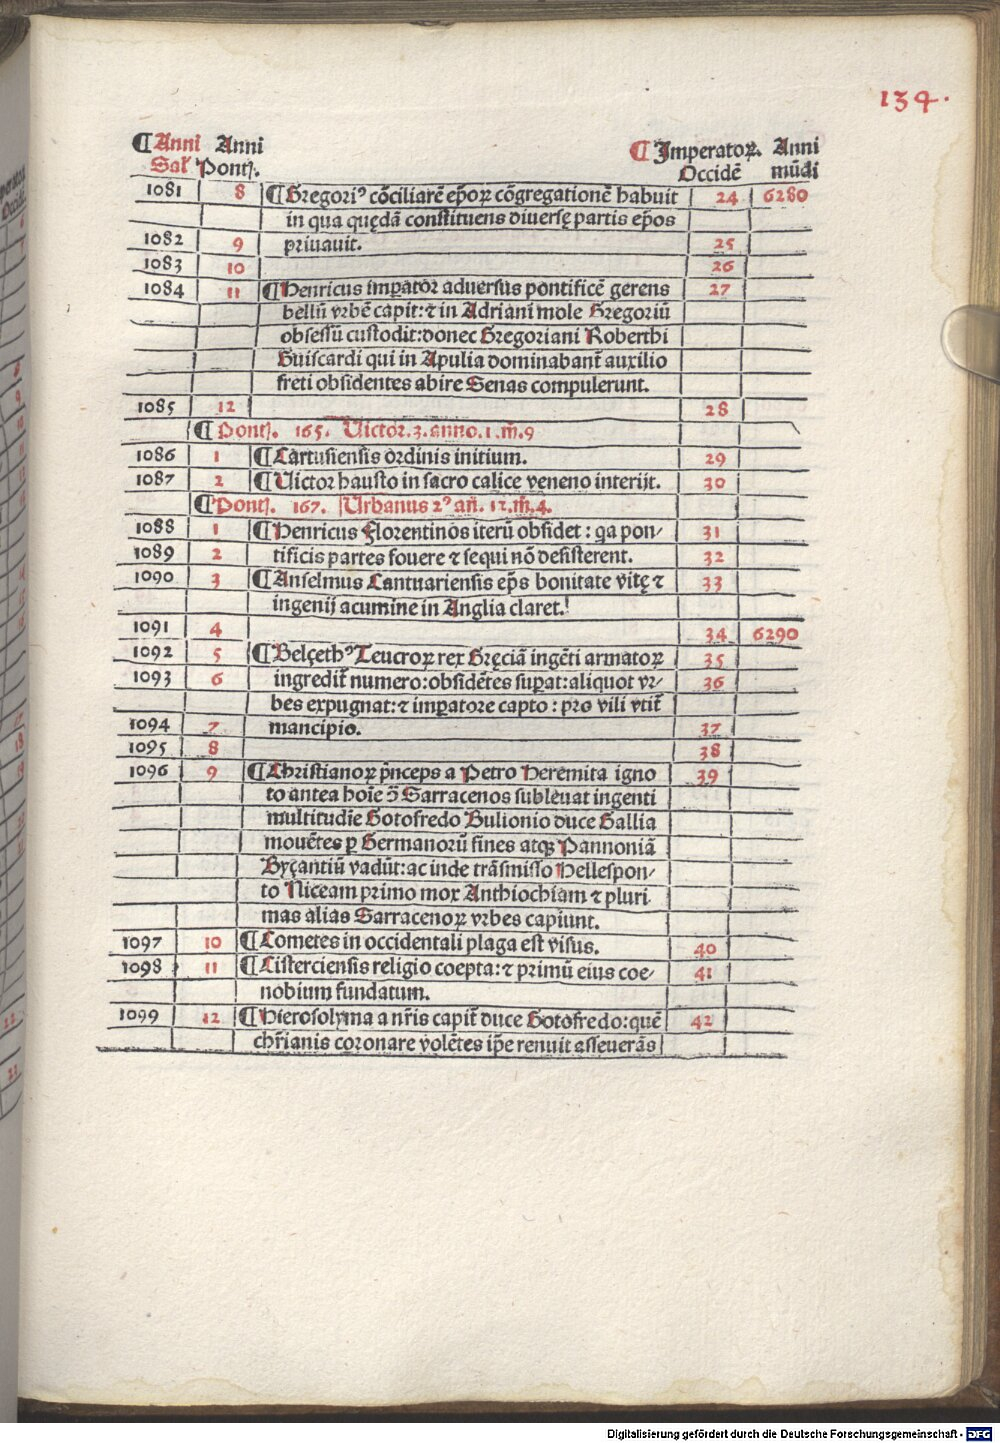 134.
¶Anni Anni ¶Imperatoꝝ. Anni
Saɫ Pontɉ. Occidē mūdi
1081 8 ¶Gregoriꝰ cōciliarē ep̄oꝝ cōgregationē habuit 24 6280
in qua quędā constituens diuersę partis ep̄os
1082 9 priuauit. 25
1083 10 26
1084 11 ¶Henricus imp̄ator aduersus pontificē gerens 27
bellū vrbē capit: ⁊ in Adriani mole Gregoriū
obsessū custodit: donec Gregoriani Roberthi
Guiscardi qui in Apulia dominabant̄ auxilio
freti obsidentes abire Senas compulerunt.
1085 12 28
¶Pontɉ. 165. Uictor. 3. anno. 1. m̄. 9
1086 1 ¶Cartusiensis ordinis initium. 29
1087 2 ¶Uictor hausto in sacro calice veneno interijt. 30
¶Pontɉ. 167. Urbanus 2ꝰ an̄. 12. m̄. 4.
1088 1 ¶Henricus Florentinos iterū obsidet: qa pon- 31
1089 2 tificis partes fouere ⁊ sequi nō desisterent. 32
1090 3 ¶Anselmus Cantuariensis ep̄s bonitate vitę ⁊ 33
ingenij acumine in Anglia claret.
1091 4 34 6290
1092 5 ¶Belçethꝰ Teucroꝝ rex Gręciā ingēti armatoꝝ 35
1093 6 ingredit̄ numero: obsidētes sup̄at: aliquot vr- 36
bes expugnat: ⁊ imp̄atore capto: pro vili vtit̄
1094 7 mancipio. 37
1095 8 38
1096 9 ¶Christianoꝝ p̄nceps a Petro Heremita igno 39
to antea hoīe ɔ̄ Sarracenos subleuat ingenti
multitudīe Gotofredo Bulionio duce Gallia
mouētes ꝑ Germanorū fines atqꝫ Pannoniā
Byçantiū vadūt: ac inde trāsmisso Hellespon-
to Niceam primo mox Anthiochiam ⁊ pluri
mas alias Sarracenoꝝ vrbes capiunt.
1097 10 ¶Cometes in occidentali plaga est visus. 40
1098 11 ¶Cisterciensis religio coepta: ⁊ primū eius coe- 41
nobium fundatum.
1099 12 ¶Hierosolyma a nr̄is capit̄ duce Gotofredo: quē 42
chr̄ianis coronare volētes ip̄e renuit asseuerās
Digitalisierung gefördert durch die Deutsche Forschungsgemeinschaft - DFG